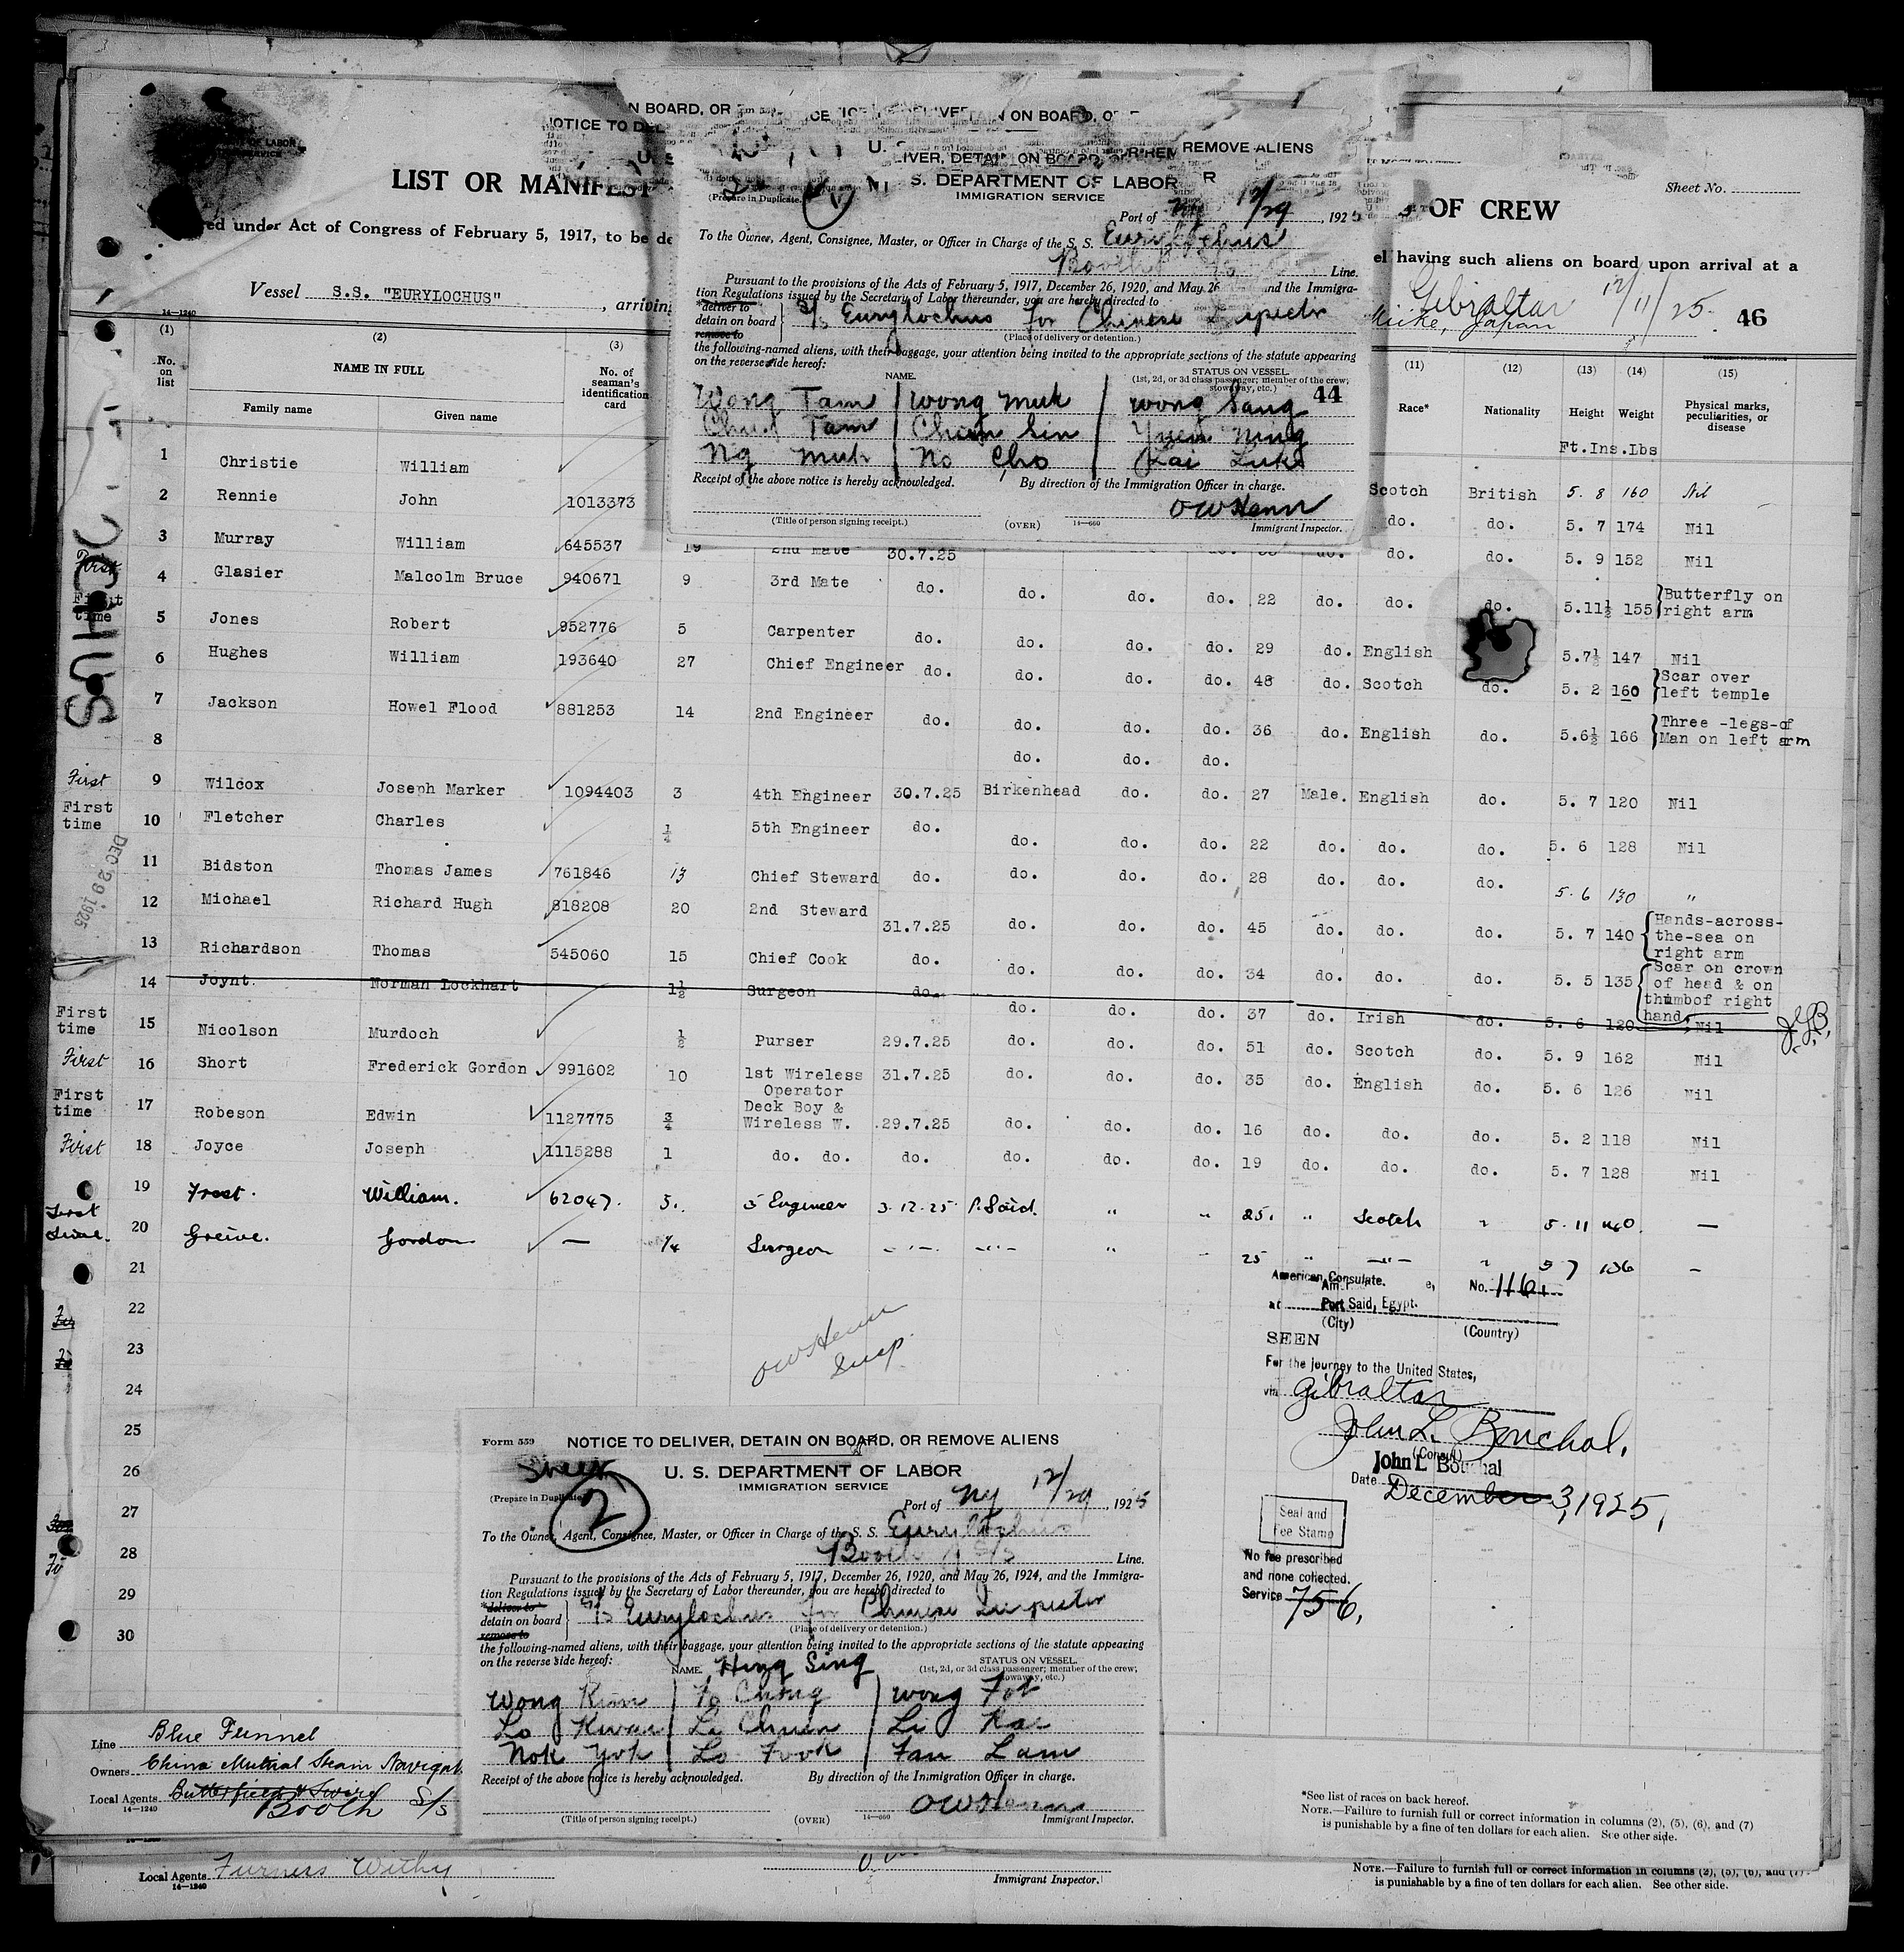 LIST OR MANIFEST
OF CREW
Sheet No.
ed under Act of Congress of February 5, 1917, to be de
el having such aliens on board upon arrival at a
Vessel S.S. "EURYLOCHUS", arrivin
Gibraltar 12/11/25.
Japan
46
14-1240
N BOARD, OR
ON BOARD, OR
NOTICE TO DEL
LIVER, DETAIN ON BOARD, OR REM REMOVE ALIENS
S. DEPARTMENT OF LABOR
IMMIGRATION SERVICE
(Prepare in Duplicate.)
Port of Ny 12/29, 1925
To the Owner, Agent, Consignee, Master, or Officer in Charge of the S. S. Eurylochus
Booth Line.
Pursuant to the provisions of the Acts of February 5, 1917, December 26, 1920, and May 26 and the Immigra-
tion Regulations issued by the Secretary of Labor thereunder, you are hereby directed to
*deliver to
detain on board
remove to
S/S Eurylochus for Chinese Inspector
(Place of delivery or detention.)
the following-named aliens, with their baggage, your attention being invited to the appropriate sections of the statute appearing
on the reverse side hereof:
NAME. STATUS ON VESSEL.
(1st, 2d, or 3d class passenger; member of the crew;
stowaway, etc.)
44
Wong Tam Wong Muk Wong Sang
Tam Chun Sin Yuen Ning
Ng Muk No Cho Lai Luke
Receipt of the above notice is hereby acknowledged. By direction of the Immigration Officer in charge.
OW Henn
(Title of person signing receipt.) (OVER) 14-660 Immigrant Inspector.
(1) (2) (3) (11) (12) (13) (14) (15)
No. on list NAME IN FULL No. of seaman's identification card Race* Nationality Height Weight Physical marks, peculiarities, or disease
Family name Given name
Ft.Ins.Lbs
1 Christie William Scotch British 5. 8 160 Nil
2 Rennie John 1013373 do. do. 5. 7 174 Nil
3 Murray William 645537 19 2nd Mate 30.7.25 do. do. do. 5. 9 152 Nil
First
4 Glasier Malcolm Bruce 940671 9 3rd Mate do. do. do. do. 22 do. do. do. 5.11½ 155 Butterfly on right arm
First time
5 Jones Robert 952776 5 Carpenter do. do. do. do. 29 do. English 5.7½ 147 Nil
6 Hughes William 193640 27 Chief Engineer do. do. do. do. 48 do. Scotch do. 5. 2 160 Scar over left temple
7 Jackson Howel Flood 881253 14 2nd Engineer do. do. do. do. 36 do. English do. 5.6½ 166 Three -legs-of Man on left arm
8 do. do. do.
First 9 Wilcox Joseph Marker 1094403 3 4th Engineer 30.7.25 Birkenhead do. do. 27 Male. English do. 5. 7 120 Nil
First time 10 Fletcher Charles ¼ 5th Engineer do. do. do. do. 22 do. do. do. 5. 6 128 Nil
11 Bidston Thomas James 761846 13 Chief Steward do. do. do. do. 28 do. do. do. 5. 6 130 "
12 Michael Richard Hugh 818208 20 2nd Steward 31.7.25 do. do. do. 45 do. do. do. 5. 7 140 Hands-across-the-sea on right arm
13 Richardson Thomas 545060 15 Chief Cook do. do. do. do. 34 do. do. do. 5. 5 135 Scar on crown of head & on thumbof right hand
14 Joynt Norman Lockhart 1½ Surgeon do. do. do. do. 37 do. Irish do. 5. 6 120 Nil
First time 15 Nicolson Murdoch ½ Purser 29.7.25 do. do. do. 51 do. Scotch do. 5. 9 162 Nil
First 16 Short Frederick Gordon 991602 10 1st Wireless Operator 31.7.25 do. do. do. 35 do. English do. 5. 6 126 Nil
First time 17 Robeson Edwin 1127775 ¾ Deck Boy & Wireless W. 29.7.25 do. do. do. 16 do. do. do. 5. 2 118 Nil
First 18 Joyce Joseph 1115288 1 do. do. do. do. do. do. 19 do. do. do. 5. 7 128 Nil
19 Frost. William. 62047. 5. 5 Engineer 3.12.25 P. Said. " " 25. " Scotch " 5.11 140. —
First time. 20 Greive. Gordon — ¼ Surgeon -"- -"- " " 25 " -"- " 5 7 136 —
21
22
23
24
25
26
27
28
29
30
DEC 29 1925
OW Henn
Insp.
American Consulate. No. 1161
at Port Said, Egypt.
(City) (Country)
SEEN
For the journey to the United States,
via Gibraltar
John L. Bouchal.
(Consul)
John L Bouchal
Date December 3, 1925.
Seal and
Fee Stamp
No fee prescribed
and none collected.
Service 756.
Form 559 NOTICE TO DELIVER, DETAIN ON BOARD, OR REMOVE ALIENS
Sheet
2
U. S. DEPARTMENT OF LABOR
IMMIGRATION SERVICE
(Prepare in Duplicate.)
Port of Ny 12/29, 1925
To the Owner, Agent, Consignee, Master, or Officer in Charge of the S. S. Eurylochus
Booth S/S Line.
Pursuant to the provisions of the Acts of February 5, 1917, December 26, 1920, and May 26, 1924, and the Immigra-
tion Regulations issued by the Secretary of Labor thereunder, you are hereby directed to
*deliver to
detain on board
remove to
S/S Eurylochus for Chinese Inspector
(Place of delivery or detention.)
the following-named aliens, with their baggage, your attention being invited to the appropriate sections of the statute appearing
on the reverse side hereof:
NAME. Hing Sing STATUS ON VESSEL.
(1st, 2d, or 3d class passenger; member of the crew;
stowaway, etc.)
Wong Kim Fo Chong Wong Fot
Lo Kwai Le Chuen Li Kai
Nok Yok Lo Fook Fan Lam
Receipt of the above notice is hereby acknowledged. By direction of the Immigration Officer in charge.
OW Henn
(Title of person signing receipt.) (OVER) 14-660 Immigrant Inspector.
Line Blue Funnel
Owners China Mutual Steam Navigat
Local Agents Butterfield & Swire
Booth S/s
14-1240
*See list of races on back hereof.
NOTE.—Failure to furnish full or correct information in columns (2), (5), (6), and (7)
is punishable by a fine of ten dollars for each alien. See other side.
Local Agents Furness Withy
14-1240
Immigrant Inspector.
NOTE.—Failure to furnish full or correct information in columns (2), (5), (6), and (7)
is punishable by a fine of ten dollars for each alien. See other side.